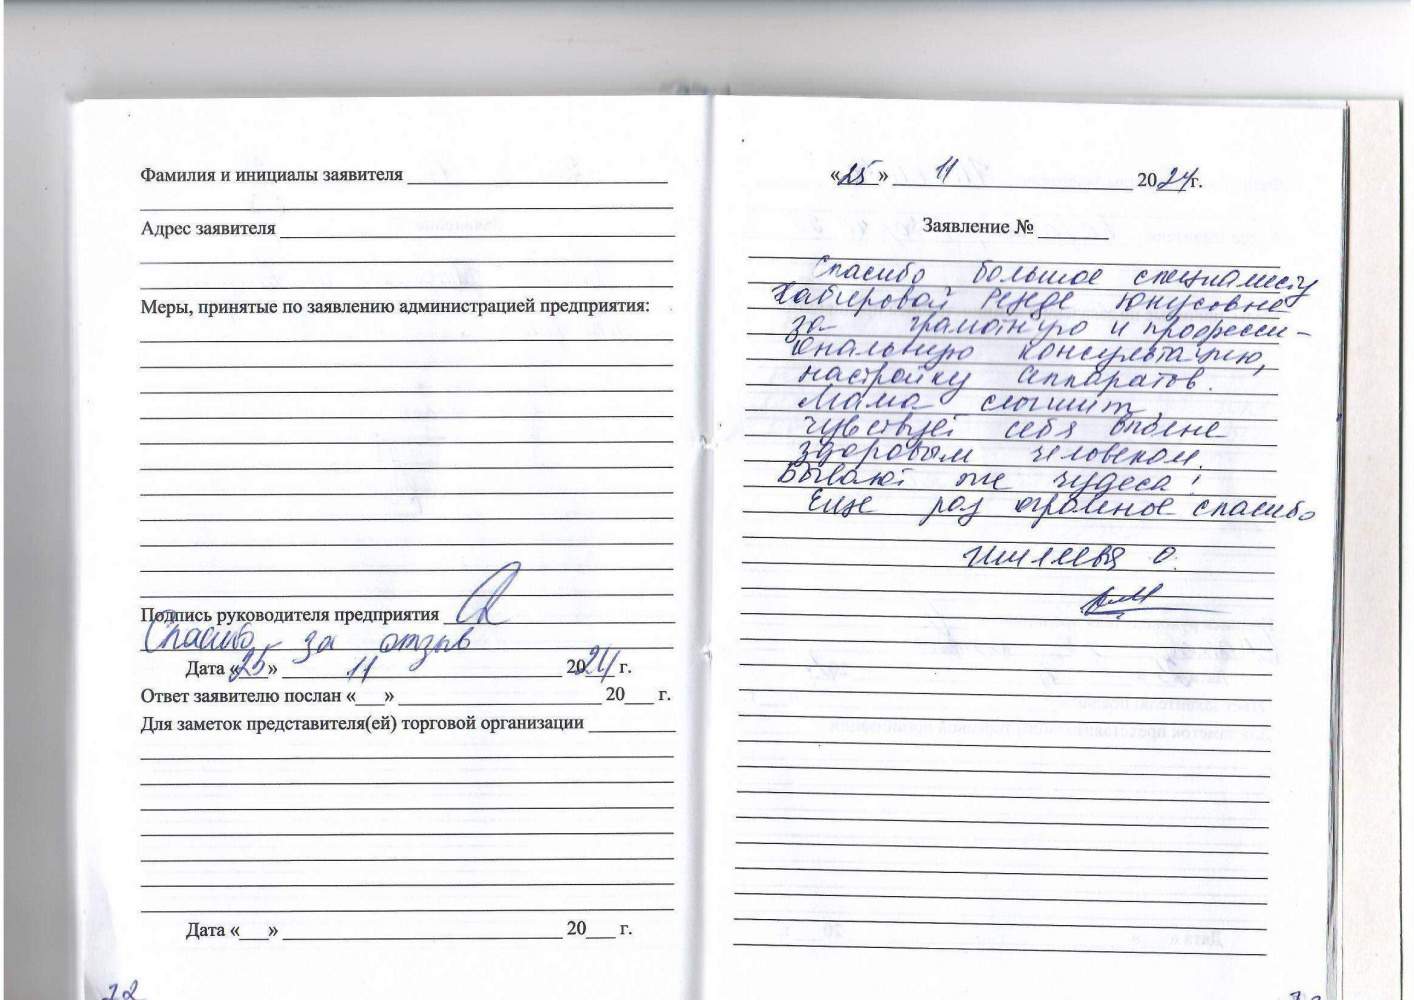 Фамилия и инициалы заявителя
Адрес заявителя
Меры, принятые по заявлению администрацией предприятия:
Подпись руководителя предприятия
Спасибо за отзыв
Дата «25» 11 2024 г.
Ответ заявителю послан «___» 20___ г.
Для заметок представителя(ей) торговой организации
Дата «___» 20___ г.
22
«25» 11 2024г.
Заявление №
Спасибо большое специалисту
Хабировой Резеде Юнусовне
за грамотную и професси-
ональную консультацию,
настройку аппаратов.
Мама слышит,
чувствует себя вполне
здоровым человеком.
Бывают же чудеса!
Еще раз огромное спасибо
О.